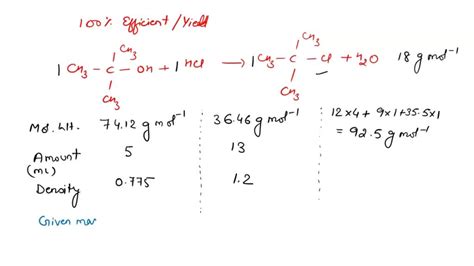 100% Efficient/Yield
CH3 CH3
1 CH3 - C - OH + 1 HCl → 1 CH3 - C - Cl + H2O 18 g mol-1
CH3 CH3
Mol. Wt. 74.12 g mol-1 36.46 g mol-1 12x4 + 9x1+35.5x1
= 92.5 g mol-1
Amount 5 13
(mL)
Density 0.775 1.2
Given mas